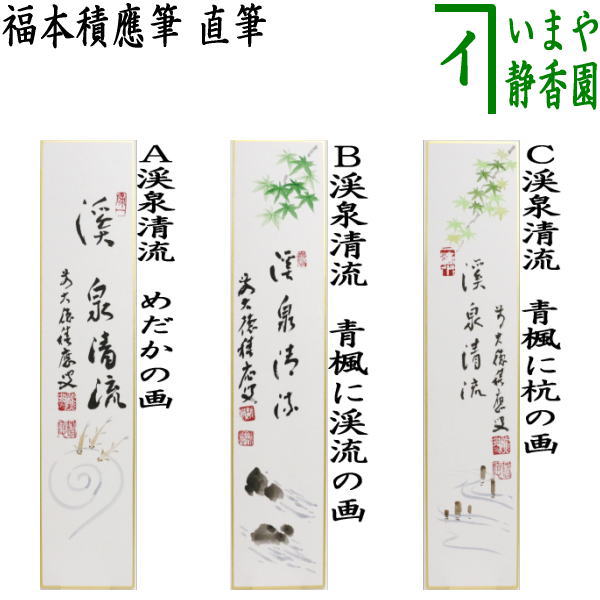 福本積應筆 直筆
イ
いまや
静香園
A渓泉清流 めだかの画
B渓泉清流 青楓に渓流の画
C渓泉清流 青楓に杭の画
渓泉清流
渓泉清流
渓泉清流